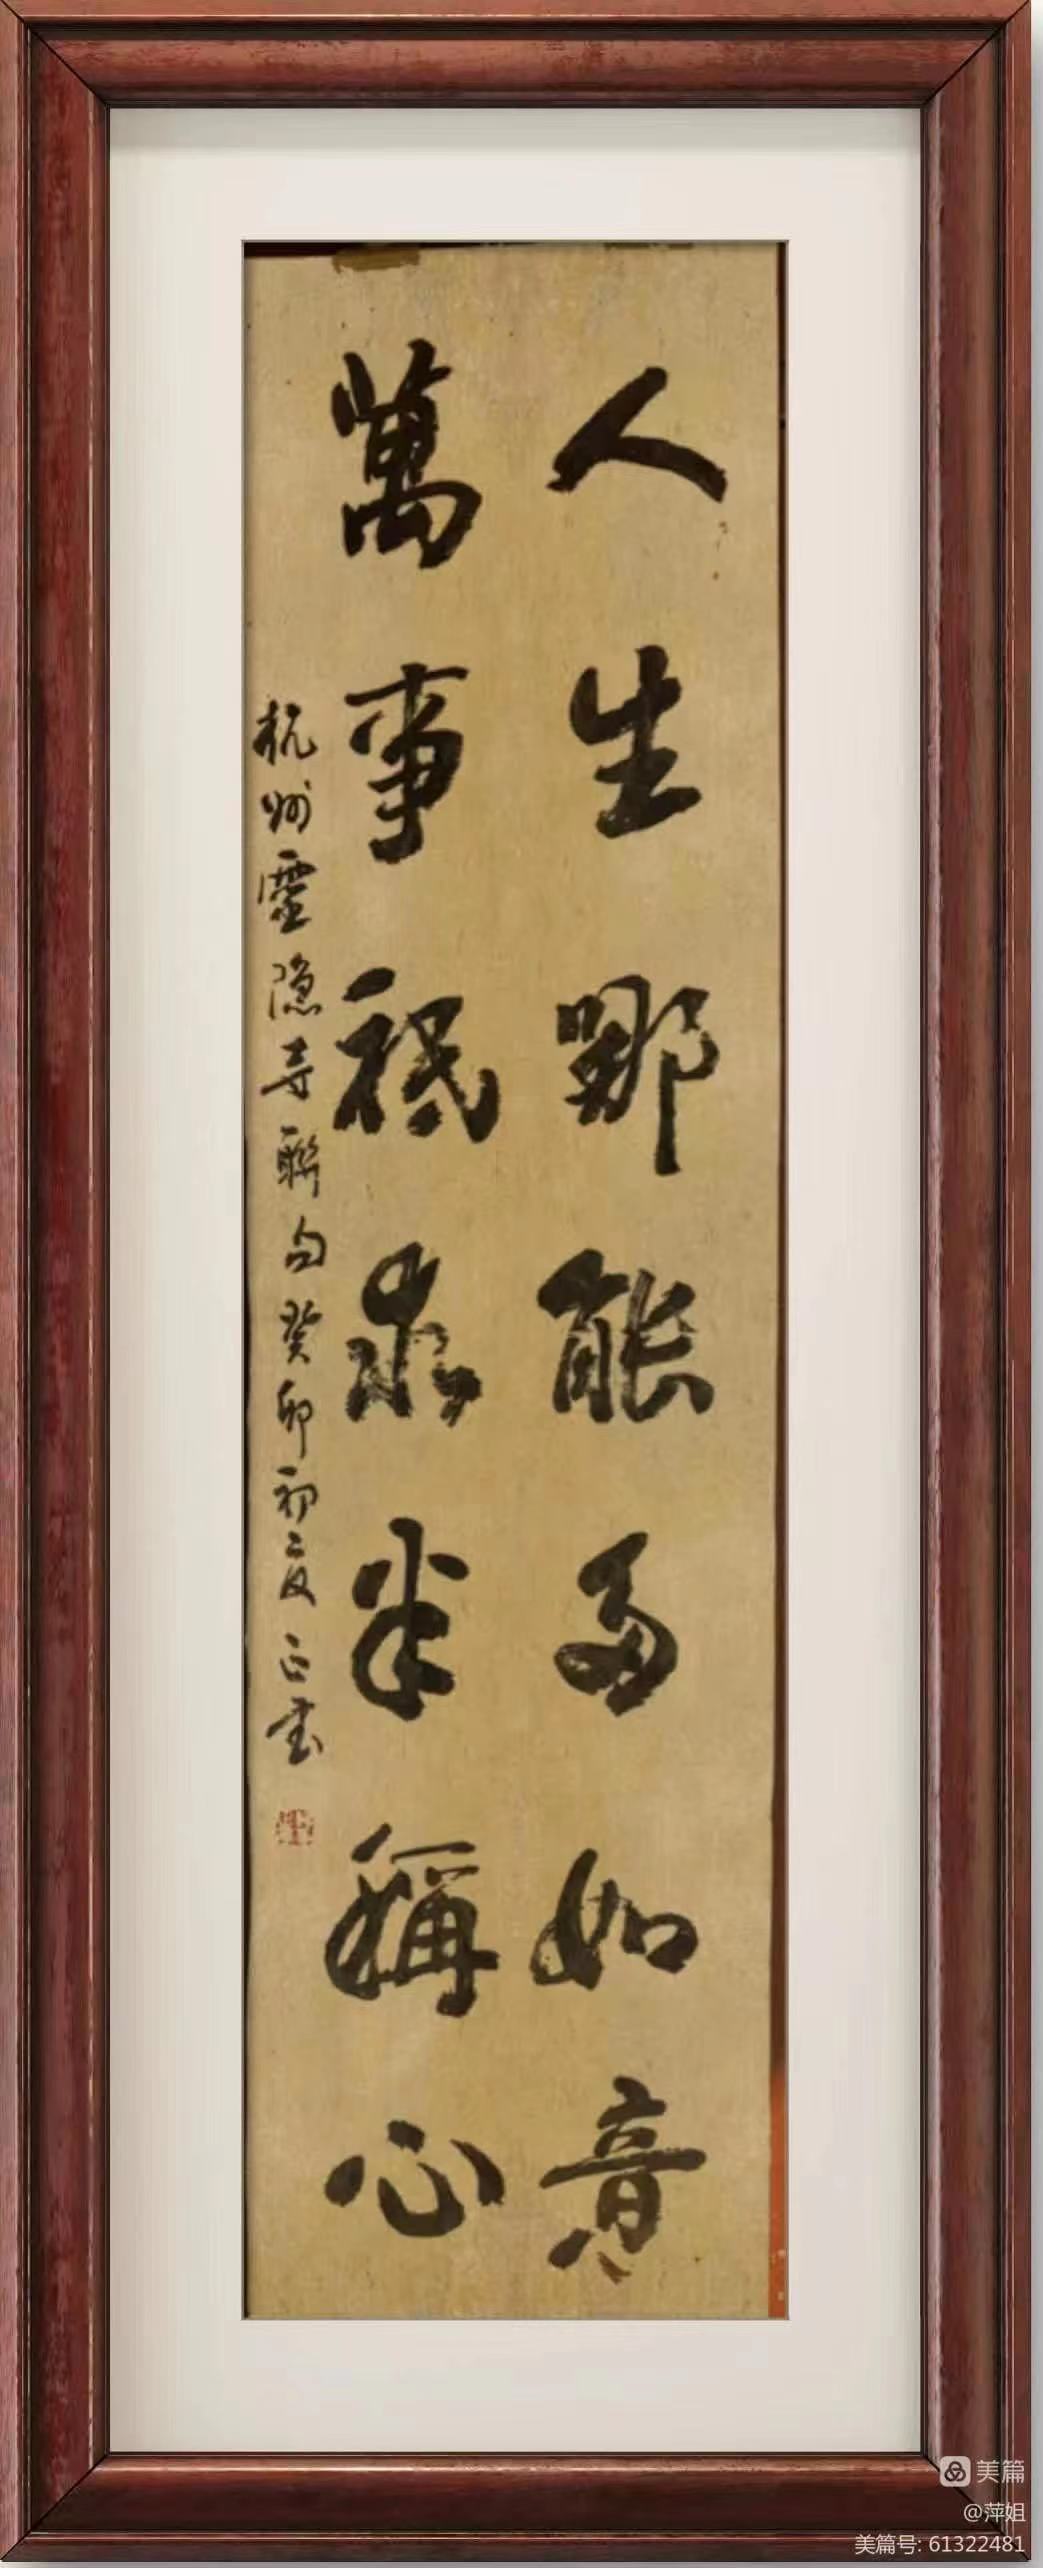 人生哪能多如意
萬事祇求半稱心
杭州靈隐寺聯句癸卯初夏正書
美篇
@萍姐
美篇号: 61322481